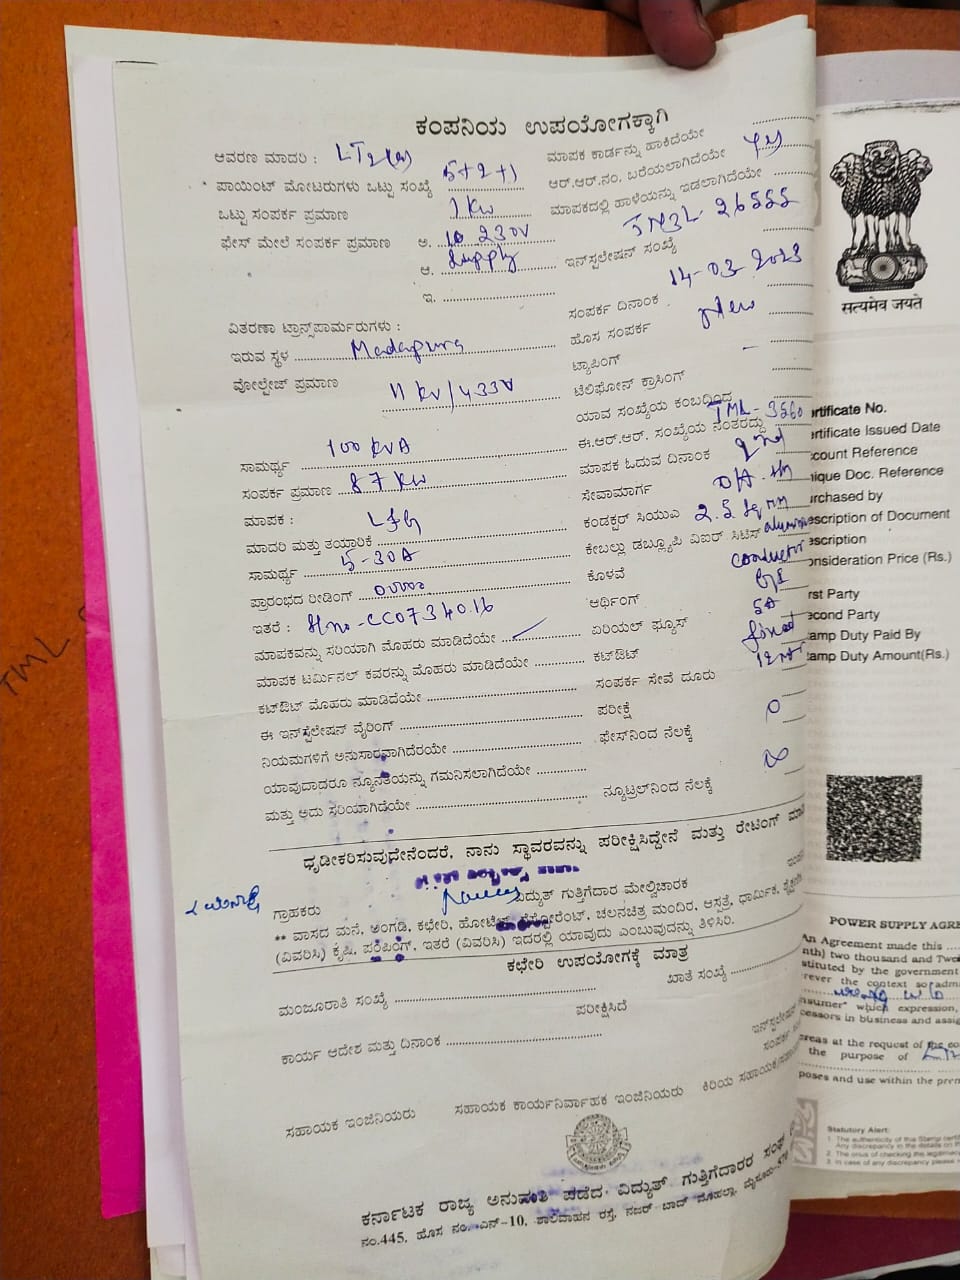 ಕಂಪನಿಯ ಉಪಯೋಗಕ್ಕಾಗಿ
ಆವರಣ ಮಾದರಿ : LT2(a)
ಮಾಪಕ ಕಾರ್ಡನ್ನು ಹಾಕಿದೆಯೇ
ಪಾಯಿಂಟ್ ಮೋಟರುಗಳು ಒಟ್ಟು ಸಂಖ್ಯೆ 5+2+1
ಆರ್.ಆರ್.ನಂ. ಬರೆಯಲಾಗಿದೆಯೇ yes
ಒಟ್ಟು ಸಂಪರ್ಕ ಪ್ರಮಾಣ 1 kw
ಮಾಪಕದಲ್ಲಿ ಹಾಳೆಯನ್ನು ಇಡಲಾಗಿದೆಯೇ
ಫೇಸ್ ಮೇಲೆ ಸಂಪರ್ಕ ಪ್ರಮಾಣ ಅ. 1ϕ 230V
ಆ. supply
ಇನ್‌ಸ್ಪಲೇಷನ್ ಸಂಖ್ಯೆ
ಇ.
ಸಂಪರ್ಕ ದಿನಾಂಕ 14-03-2023
ವಿತರಣಾ ಟ್ರಾನ್ಸ್‌ಪಾರ್ಮರುಗಳು :
ಹೊಸ ಸಂಪರ್ಕ New
ಇರುವ ಸ್ಥಳ Madapura
ಟ್ಯಾಪಿಂಗ್ –
ವೋಲ್ಟೇಜ್ ಪ್ರಮಾಣ 11 kv/433V
ಟೆಲಿಫೋನ್ ಕ್ರಾಸಿಂಗ್
ಯಾವ ಸಂಖ್ಯೆಯ ಕಂಬದಿಂದ
ಸಾಮರ್ಥ್ಯ 100 KVA
ಈ.ಆರ್.ಆರ್. ಸಂಖ್ಯೆಯ ನಂತರದ್ದು TML-3560
ಸಂಪರ್ಕ ಪ್ರಮಾಣ 87 kw
ಮಾಪಕ ಓದುವ ದಿನಾಂಕ 2nd
ಮಾಪಕ :
ಸೇವಾಮಾರ್ಗ
ಮಾದರಿ ಮತ್ತು ತಯ್ಯಾರಿಕೆ L&G
ಕಂಡಕ್ಟರ್ ಸಿಯುಎ 2.5 sqmm
ಸಾಮರ್ಥ್ಯ 5-30A
ಕೇಬಲ್ಲು ಡಬ್ಲ್ಯೂಪಿ ವಿಐರ್ ಸಿಟಿಸ್
conductor
ಪ್ರಾರಂಭದ ರೀಡಿಂಗ್
ಕೊಳವೆ GI
ಇತರೆ : Slno-CC0734016
ಆರ್ಥಿಂಗ್
ಮಾಪಕವನ್ನು ಸರಿಯಾಗಿ ಮೊಹರು ಮಾಡಿದೆಯೇ
ಏರಿಯಲ್ ಫ್ಯೂಸ್ 5A
ಮಾಪಕ ಟರ್ಮಿನಲ್ ಕವರನ್ನು ಮೊಹರು ಮಾಡಿದೆಯೇ
ಕಟ್‌ಔಟ್ fixed
ಕಟ್‌ಔಟ್ ಮೊಹರು ಮಾಡಿದೆಯೇ
ಸಂಪರ್ಕ ಸೇವೆ ದೂರು
ಈ ಇನ್‌ಸ್ಪಲೇಷನ್ ವೈರಿಂಗ್
ಪರೀಕ್ಷೆ
ನಿಯಮಗಳಿಗೆ ಅನುಸಾರವಾಗಿದೆರಯೇ
ಫೇಸ್‌ನಿಂದ ನೆಲಕ್ಕೆ
ಯಾವುದಾದರೂ ನ್ಯೂನತೆಯನ್ನು ಗಮನಿಸಲಾಗಿದೆಯೇ
ಮತ್ತು ಅದು ಸರಿಯಾಗಿದೆಯೇ
ನ್ಯೂಟ್ರಲ್‌ನಿಂದ ನೆಲಕ್ಕೆ
ಧೃಡೀಕರಿಸುವುದೇನೆಂದರೆ, ನಾನು ಸ್ಥಾವರವನ್ನು ಪರೀಕ್ಷಿಸಿದ್ದೇನೆ ಮತ್ತು ರೇಟಿಂಗ್
ಗ್ರಾಹಕರು
ವಿದ್ಯುತ್ ಗುತ್ತಿಗೆದಾರ ಮೇಲ್ವಿಚಾರಕ
** ವಾಸದ ಮನೆ, ಅಂಗಡಿ, ಕಛೇರಿ, ಹೋಟೆಲ್ ರೆಸ್ಟೋರೆಂಟ್, ಚಲನಚಿತ್ರ ಮಂದಿರ, ಆಸ್ಪತ್ರೆ, ಧಾರ್ಮಿಕ,
(ವಿವರಿಸಿ) ಕೃಷಿ, ಪಂಪಿಂಗ್, ಇತರೆ (ವಿವರಿಸಿ) ಇದರಲ್ಲಿ ಯಾವುದು ಎಂಬುವುದನ್ನು ತಿಳಿಸಿರಿ.
ಕಛೇರಿ ಉಪಯೋಗಕ್ಕೆ ಮಾತ್ರ
ಮಂಜೂರಾತಿ ಸಂಖ್ಯೆ
ಖಾತೆ ಸಂಖ್ಯೆ
ಪರೀಕ್ಷಿಸಿದೆ
ಕಾರ್ಯ ಆದೇಶ ಮತ್ತು ದಿನಾಂಕ
ಸಹಾಯಕ ಇಂಜಿನಿಯರು
ಸಹಾಯಕ ಕಾರ್ಯನಿರ್ವಾಹಕ ಇಂಜಿನಿಯರು
ಕಿರಿಯ
ಕರ್ನಾಟಕ ರಾಜ್ಯ ಅನುಮತಿ ಪಡೆದ ವಿದ್ಯುತ್ ಗುತ್ತಿಗೆದಾರರ ಸಂಘ
ನಂ.445, ಹೊಸ ನಂ. ಎನ್-10, ಶಾಲಿವಾಹನ ರಸ್ತೆ, ನಜರ್ ಬಾದ್ ಮೊಹಲ್ಲಾ, ಮೈಸೂರು-570
TML
सत्यमेव जयते
ertificate No.
ertificate Issued Date
ccount Reference
nique Doc. Reference
urchased by
escription of Document
escription
onsideration Price (Rs.)
rst Party
econd Party
amp Duty Paid By
amp Duty Amount(Rs.)
POWER SUPPLY AGRE
An Agreement made this
nth) two thousand and Twe
stituted by the government
rever the context so adm
nsumer" which expression,
cessors in business and assig
ereas at the request of the co
the purpose of
poses and use within the prem
Statutory Alert:
1. The authenticity of this Stamp certif
Any discrepancy in the details on th
2. The onus of checking the legitimacy
3. In case of any discrepancy please